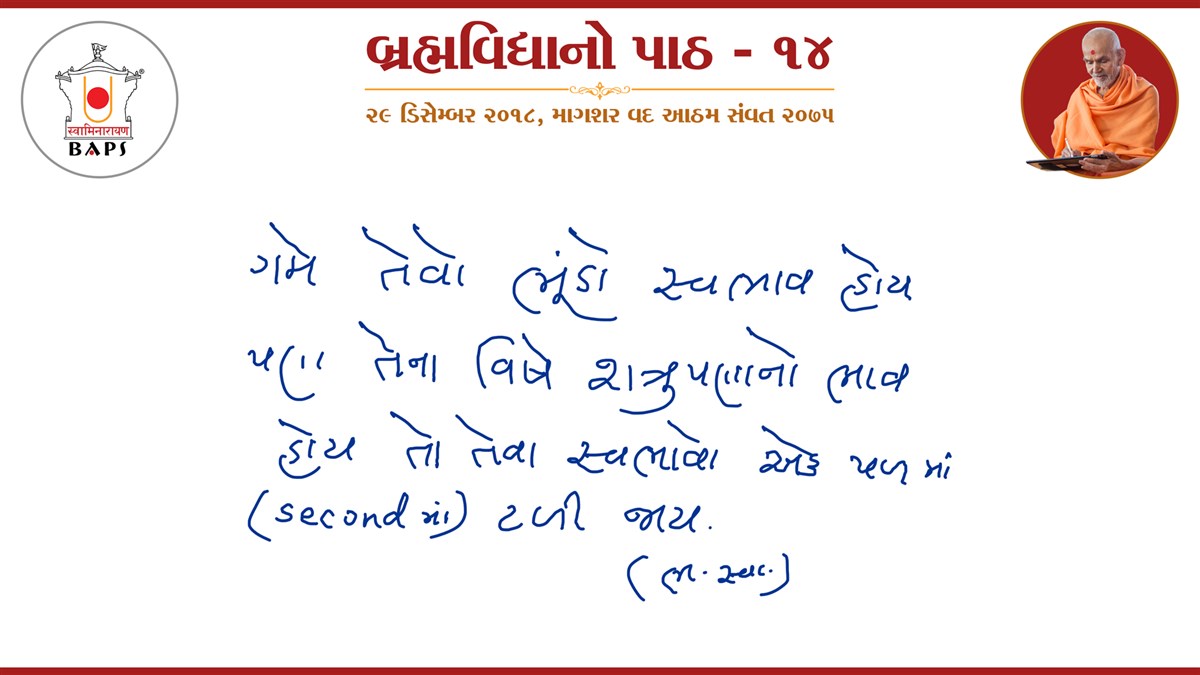 બ્રહ્મવિદ્યાનો પાઠ - ૧૪
૨૯ ડિસેમ્બર ૨૦૧૮, માગશર વદ આઠમ સંવત ૨૦૭૫
स्वामिनारायण
®
BAPS
ગમે તેવો ભૂંડો સ્વભાવ હોય
પણ તેના વિષે શત્રુપણાનો ભાવ
હોય તો તેવા સ્વભાવો એક પળ માં
(second માં) ટળી જાય.
(ભ. સ્વા.)